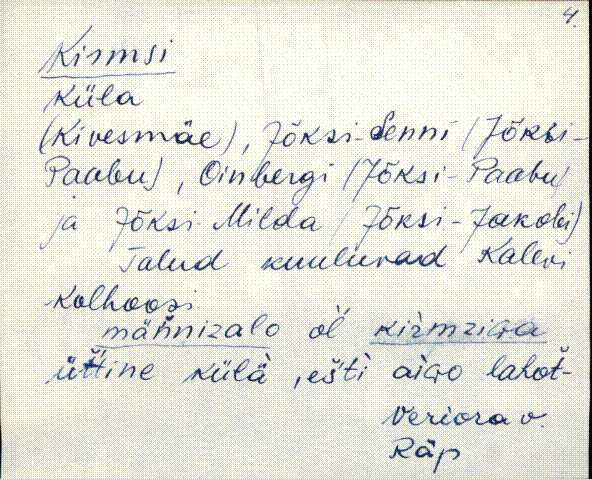 4.
Kirmsi
küla
(Kivesmäe), Jõksi-Senni (Jõksi-
Paabu), Oinbergi (Jõksi-Paabu)
ja Jõksi-Milda (Jõksi-Jakobi)
Talud kuuluvad Kalevi
kolhoosi
männizalo ol̀ì kiŕmziga
üt́tine külä, ešti aigo lahot̆-
Veriora v.
Räp